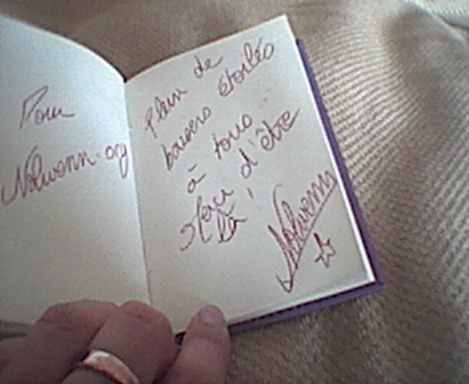 Pour
Nolwenn.org
Plein de
baisers étoilés
à tous...
d'être
là !
Nolwenn